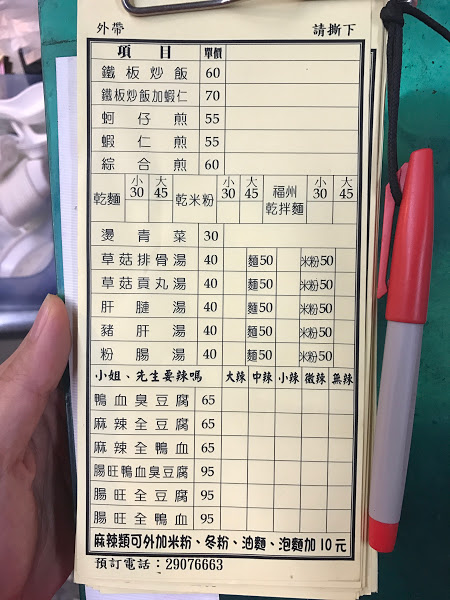 外帶 請撕下
項目 單價
鐵板炒飯 60
鐵板炒飯加蝦仁 70
蚵仔煎 55
蝦仁煎 55
綜合煎 60
乾麵 小30 大45 乾米粉 小30 大45 福州乾拌麵 小30 大45
燙青菜 30
草菇排骨湯 40 麵50 米粉50
草菇貢丸湯 40 麵50 米粉50
肝腱湯 40 麵50 米粉50
豬肝湯 40 麵50 米粉50
粉腸湯 40 麵50 米粉50
小姐、先生要辣嗎 大辣 中辣 小辣 微辣 無辣
鴨血臭豆腐 65
麻辣全豆腐 65
麻辣全鴨血 65
腸旺鴨血臭豆腐 95
腸旺全豆腐 95
腸旺全鴨血 95
麻辣類可外加米粉、冬粉、油麵、泡麵加10元
預訂電話：29076663